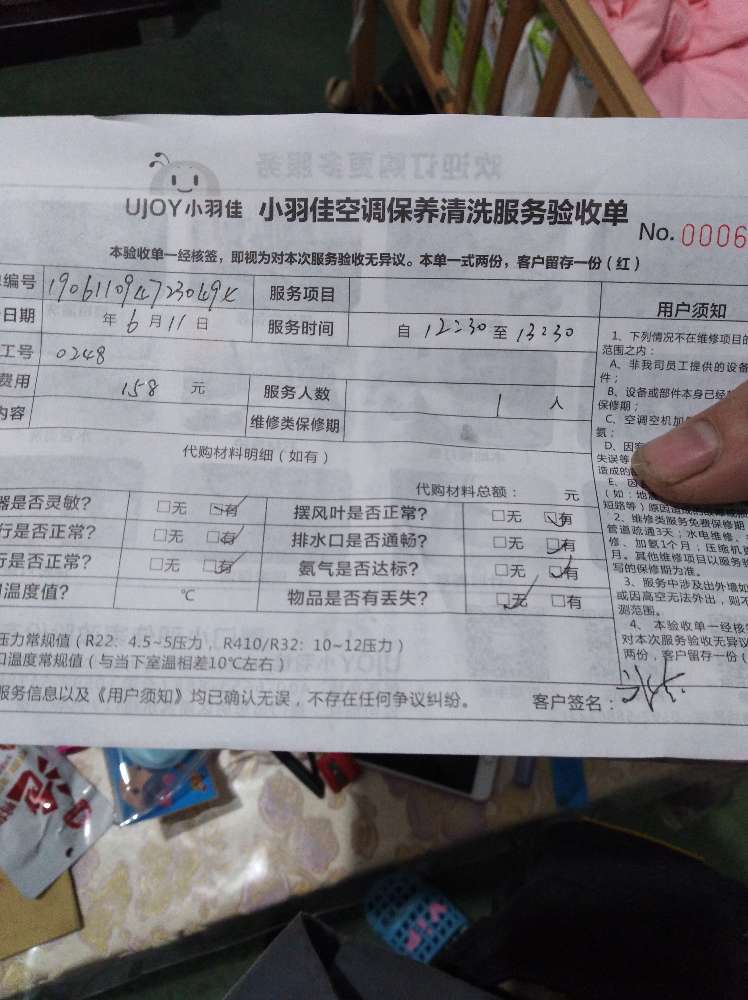 欢迎订购更多服务
UJOY小羽佳 小羽佳空调保养清洗服务验收单
No. 0006
本验收单一经核签，即视为对本次服务验收无异议。本单一式两份，客户留存一份（红）
编号 服务项目
日期 年 6 月 11 日 服务时间 自 12:30 至 13:30
工号 0248
费用 158 元 服务人数 1 人
内容 维修类保修期
代购材料明细（如有）
代购材料总额： 元
器是否灵敏？ □无 □有 摆风叶是否正常？ □无 □有
行是否正常？ □无 □有 排水口是否通畅？ □无 □有
行是否正常？ □无 □有 氨气是否达标？ □无 □有
温度值？ ℃ 物品是否有丢失？ □无 □有
压力常规值（R22：4.5~5压力，R410/R32：10~12压力）
口温度常规值（与当下室温相差10℃左右）
服务信息以及《用户须知》均已确认无误，不存在任何争议纠纷。 客户签名：
用户须知
1、下列情况不在维修项目的
范围之内：
A、非我司员工提供的设备
件；
B、设备或部件本身已经
保修期；
C、空调空机加
氨；
D、因
失误等
造成的
E、因
（如：地
短路等）原因造成的
2、维修类服务免费保修期
管道疏通3天；水电维修、
修、加氨1个月；压缩机
月。其他维修项目以服务
写的保修期为准。
3、服务中涉及出外墙如
或因高空无法外出，则不
测范围。
4、本验收单一经核签
对本次服务验收无异议
两份，客户留存一份（